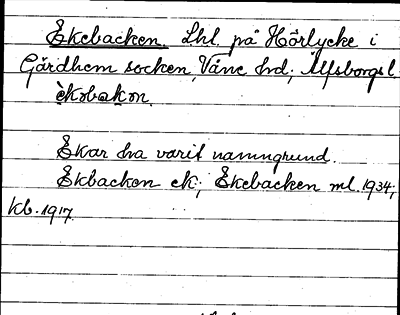 Ekebacken. Lhl. på Hörlycke i
Gärdhem socken, Väne hd; Älfsborgs l.
èkobakɷn.
Ekar ha varit namngrund.
Ekbacken ek; Ekebacken ml. 1934;
kb. 1917